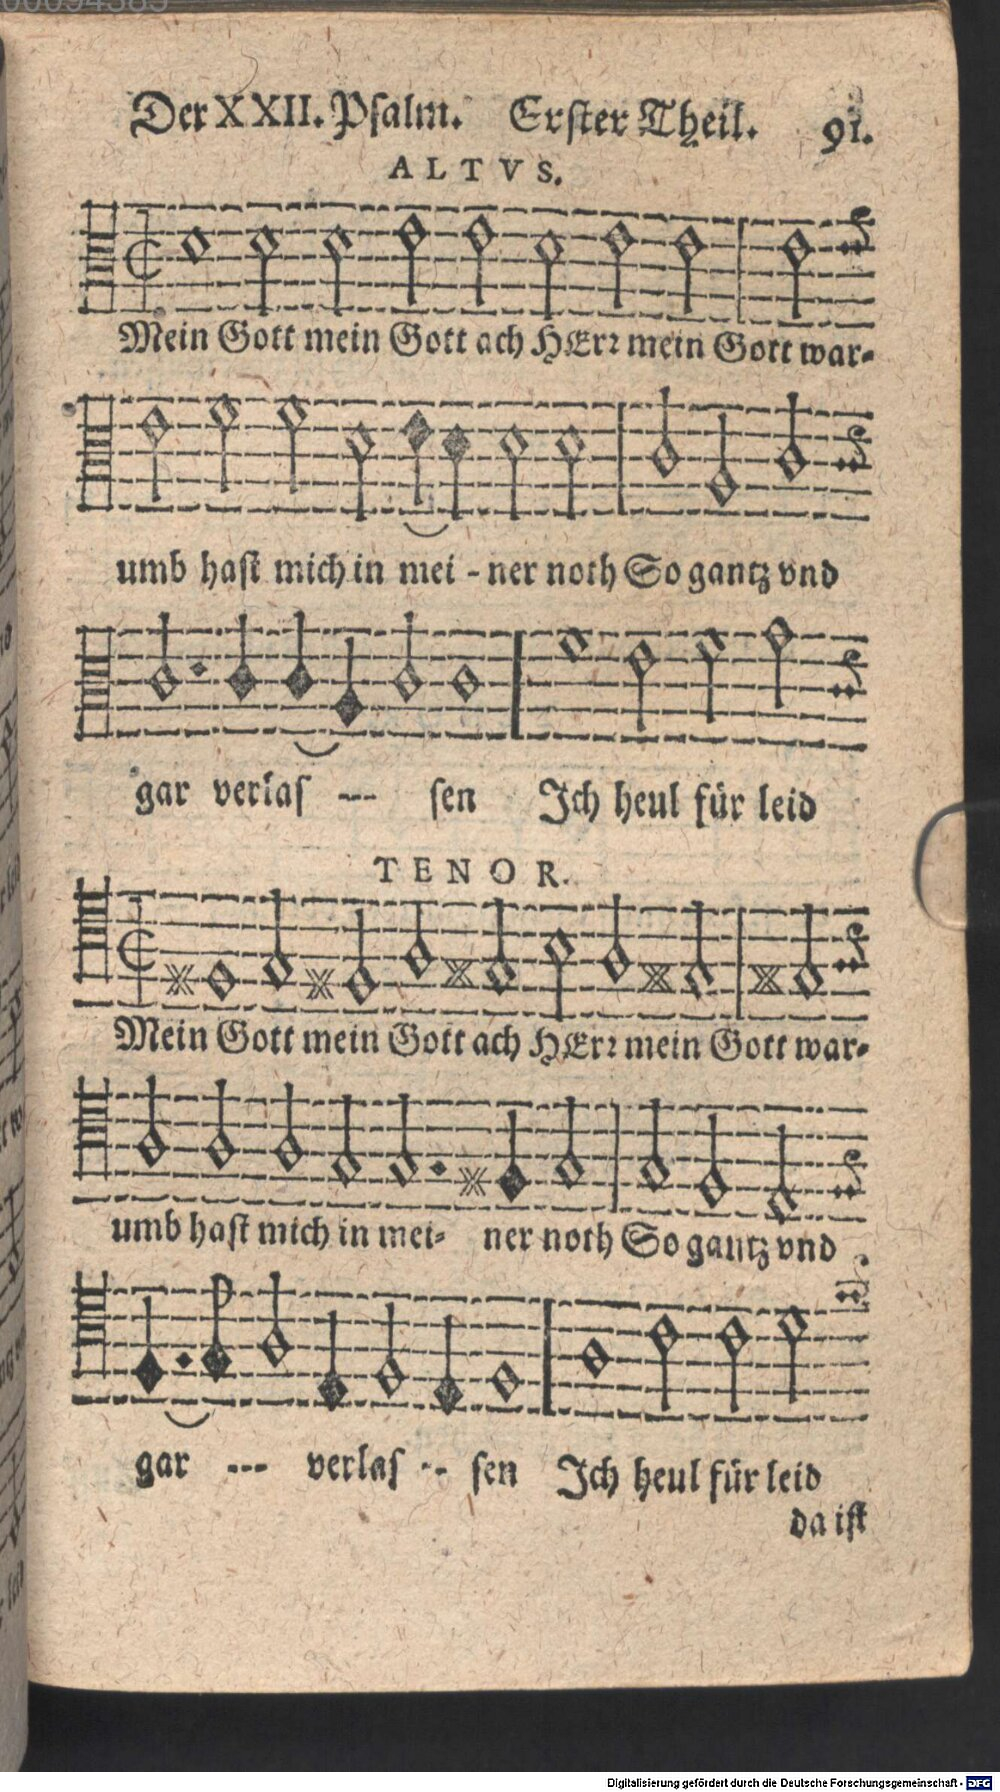 Der XXII. Psalm. Erster Theil. 91.
ALTVS.
Mein Gott mein Gott ach HErr mein Gott war-
umb hast mich in mei - ner noth So gantz vnd
gar verlas --- sen Ich heul für leid
TENOR.
Mein Gott mein Gott ach HErr mein Gott war-
umb hast mich in mei- ner noth So gantz vnd
gar --- verlas -- sen Ich heul für leid
da ist
Digitalisierung gefördert durch die Deutsche Forschungsgemeinschaft - DFG